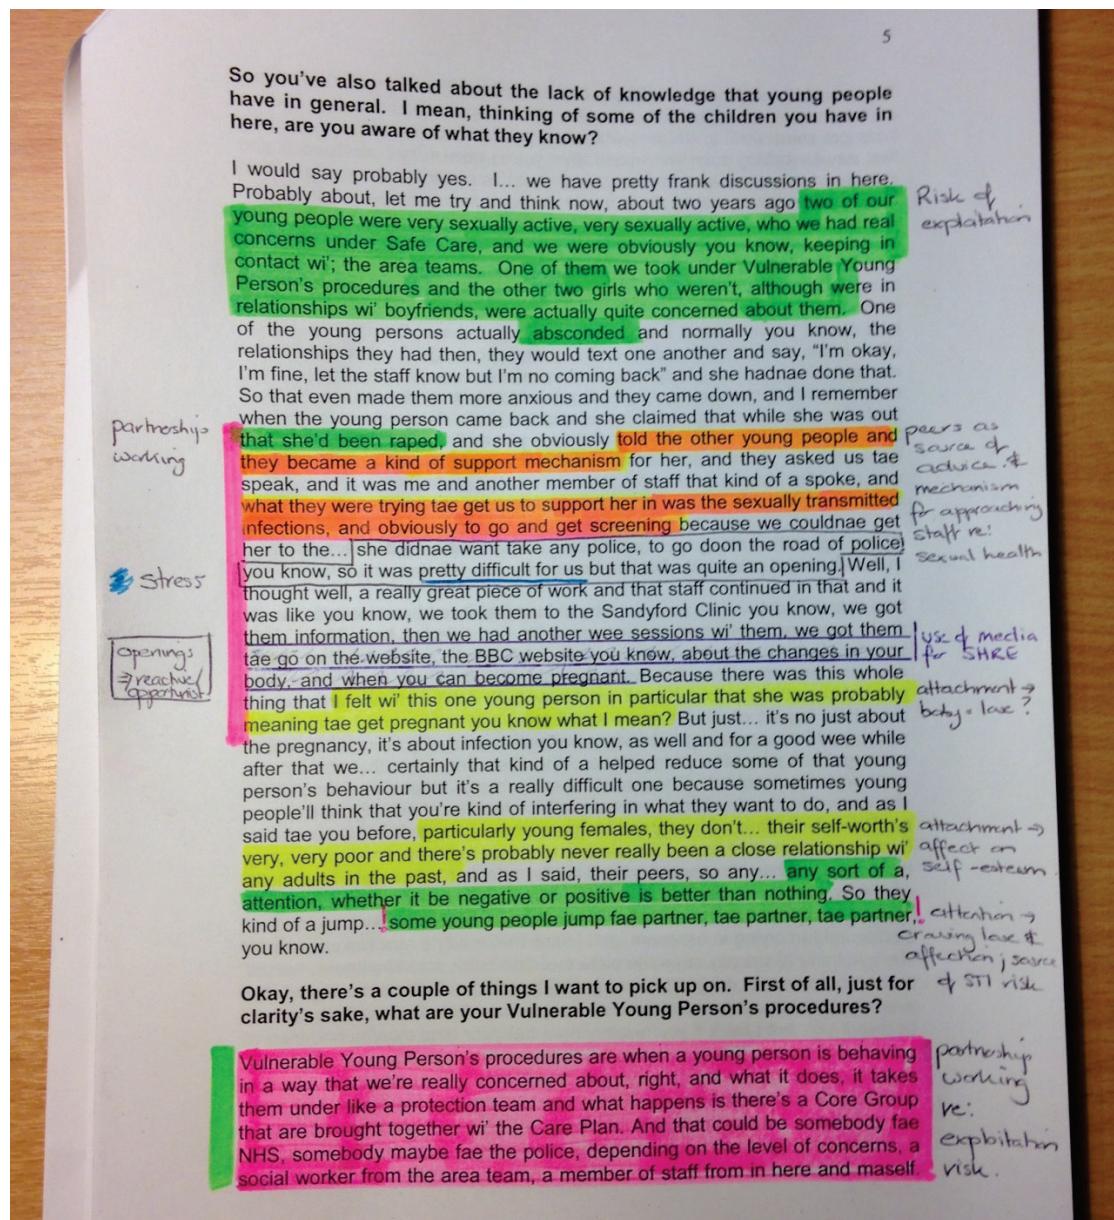 5
So you've also talked about the lack of knowledge that young people
have in general. I mean, thinking of some of the children you have in
here, are you aware of what they know?
I would say probably yes. I... we have pretty frank discussions in here.
Probably about, let me try and think now, about two years ago two of our
young people were very sexually active, very sexually active, who we had real
concerns under Safe Care, and we were obviously you know, keeping in
contact wi'; the area teams. One of them we took under Vulnerable Young
Person's procedures and the other two girls who weren't, although were in
relationships wi' boyfriends, were actually quite concerned about them. One
of the young persons actually absconded and normally you know, the
relationships they had then, they would text one another and say, "I'm okay,
I'm fine, let the staff know but I'm no coming back" and she hadnae done that.
So that even made them more anxious and they came down, and I remember
when the young person came back and she claimed that while she was out
that she'd been raped, and she obviously told the other young people and
they became a kind of support mechanism for her, and they asked us tae
speak, and it was me and another member of staff that kind of a spoke, and
what they were trying tae get us to support her in was the sexually transmitted
infections, and obviously to go and get screening because we couldnae get
her to the... she didnae want take any police, to go doon the road of police
you know, so it was pretty difficult for us but that was quite an opening. Well, I
thought well, a really great piece of work and that staff continued in that and it
was like you know, we took them to the Sandyford Clinic you know, we got
them information, then we had another wee sessions wi' them, we got them
tae go on the website, the BBC website you know, about the changes in your
body, and when you can become pregnant. Because there was this whole
thing that I felt wi' this one young person in particular that she was probably
meaning tae get pregnant you know what I mean? But just... it's no just about
the pregnancy, it's about infection you know, as well and for a good wee while
after that we... certainly that kind of a helped reduce some of that young
person's behaviour but it's a really difficult one because sometimes young
people'll think that you're kind of interfering in what they want to do, and as I
said tae you before, particularly young females, they don't... their self-worth's
very, very poor and there's probably never really been a close relationship wi'
any adults in the past, and as I said, their peers, so any... any sort of a,
attention, whether it be negative or positive is better than nothing. So they
kind of a jump... some young people jump fae partner, tae partner, tae partner,
you know.
Okay, there's a couple of things I want to pick up on. First of all, just for
clarity's sake, what are your Vulnerable Young Person's procedures?
Vulnerable Young Person's procedures are when a young person is behaving
in a way that we're really concerned about, right, and what it does, it takes
them under like a protection team and what happens is there's a Core Group
that are brought together wi' the Care Plan. And that could be somebody fae
NHS, somebody maybe fae the police, depending on the level of concerns, a
social worker from the area team, a member of staff from in here and maself.
partnership
working
Stress
openings
→ reactive/
opportunist
Risk of
exploitation
peers as
source of
advice &
mechanism
for approaching
staff re:
sexual health
use of media
for SHRE
attachment →
baby = love?
attachment →
affect on
self-esteem
attention →
craving love &
affection; source
of STI risk
partnership
working
re:
exploitation
risk.